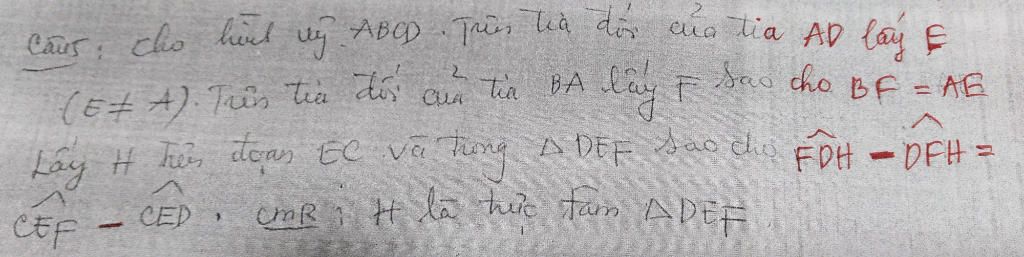 Câu 5: Cho hình vg ABCD. Trên tia đối của tia AD lấy E
(E ≠ A). Trên tia đối của tia BA lấy F sao cho BF = AE
Lấy H trên đoạn EC và trong △DEF sao cho \widehat{FDH} - \widehat{DFH} =
\widehat{CEF} - \widehat{CED}. CMR: H là trực tâm △DEF.